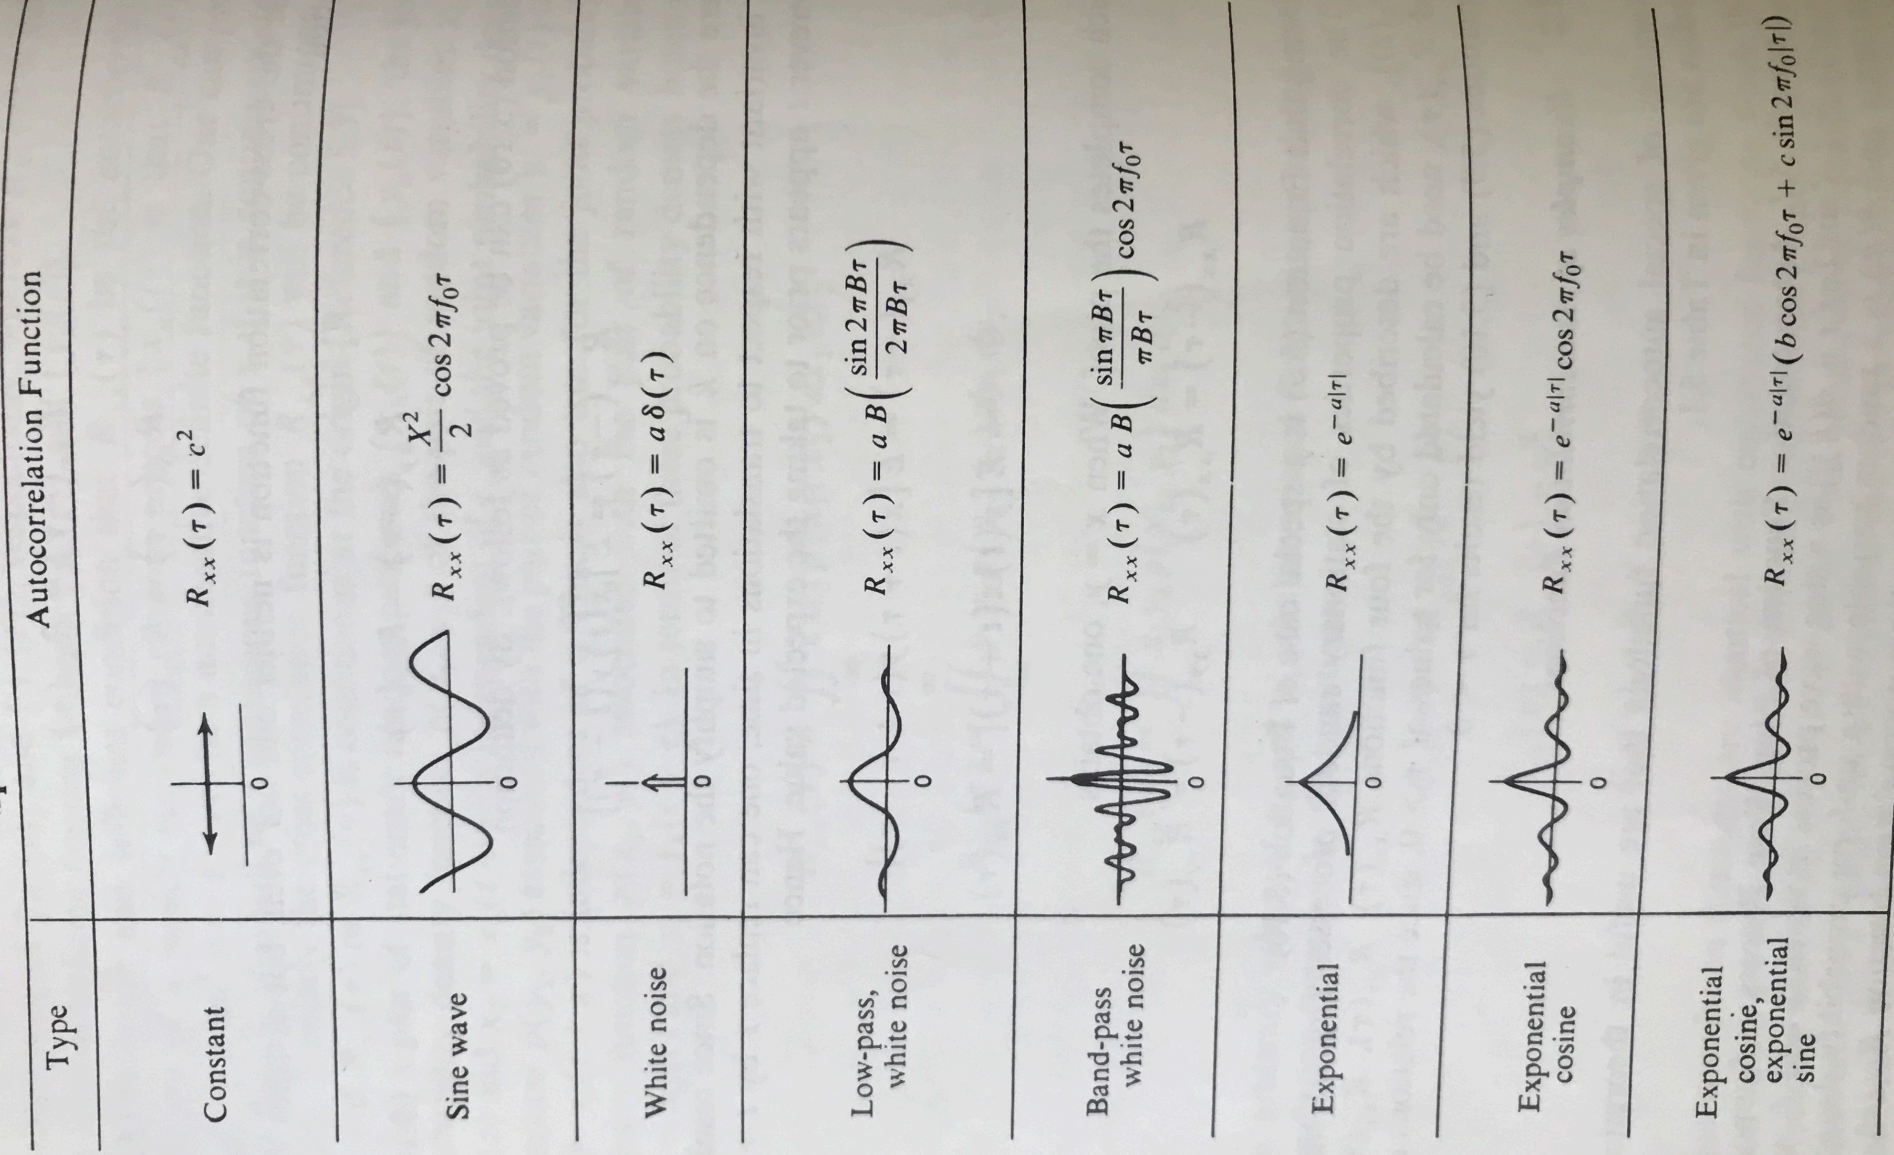 Type
Autocorrelation Function
Constant
0
R_{xx}(τ) = c²
Sine wave
0
R_{xx}(τ) = \frac{X²}{2} cos 2πf₀τ
White noise
0
R_{xx}(τ) = a δ(τ)
Low-pass,
white noise
0
R_{xx}(τ) = a B(\frac{sin 2πBτ}{2πBτ})
Band-pass
white noise
0
R_{xx}(τ) = a B(\frac{sin πBτ}{πBτ}) cos 2πf₀τ
Exponential
0
R_{xx}(τ) = e^{-a|τ|}
Exponential
cosine
0
R_{xx}(τ) = e^{-a|τ|} cos 2πf₀τ
Exponential
cosine,
exponential
sine
0
R_{xx}(τ) = e^{-a|τ|}(b cos 2πf₀τ + c sin 2πf₀|τ|)